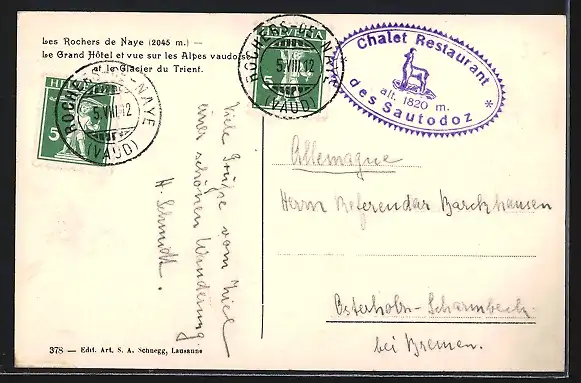 Les Rochers de Naye (2045 m.) —
Le Grand Hôtel et vue sur les Alpes vaudoises
et le Glacier du Trient.
ROCHERS-DE-NAYE
5.VIII.12
(VAUD)
HELVETIA
5
ROCHERS-DE-NAYE
5.VIII.12
(VAUD)
5
Chalet Restaurant
alt. 1820 m.
des Sautodoz *
Viele Grüße vom Ziel
einer schönen Wanderung.
H. Schmidt.
Allemagne
Herrn Referendar Barckhausen
Osterholz-Scharmbeck.
bei Bremen.
378 — Edit. Art. S. A. Schnegg, Lausanne